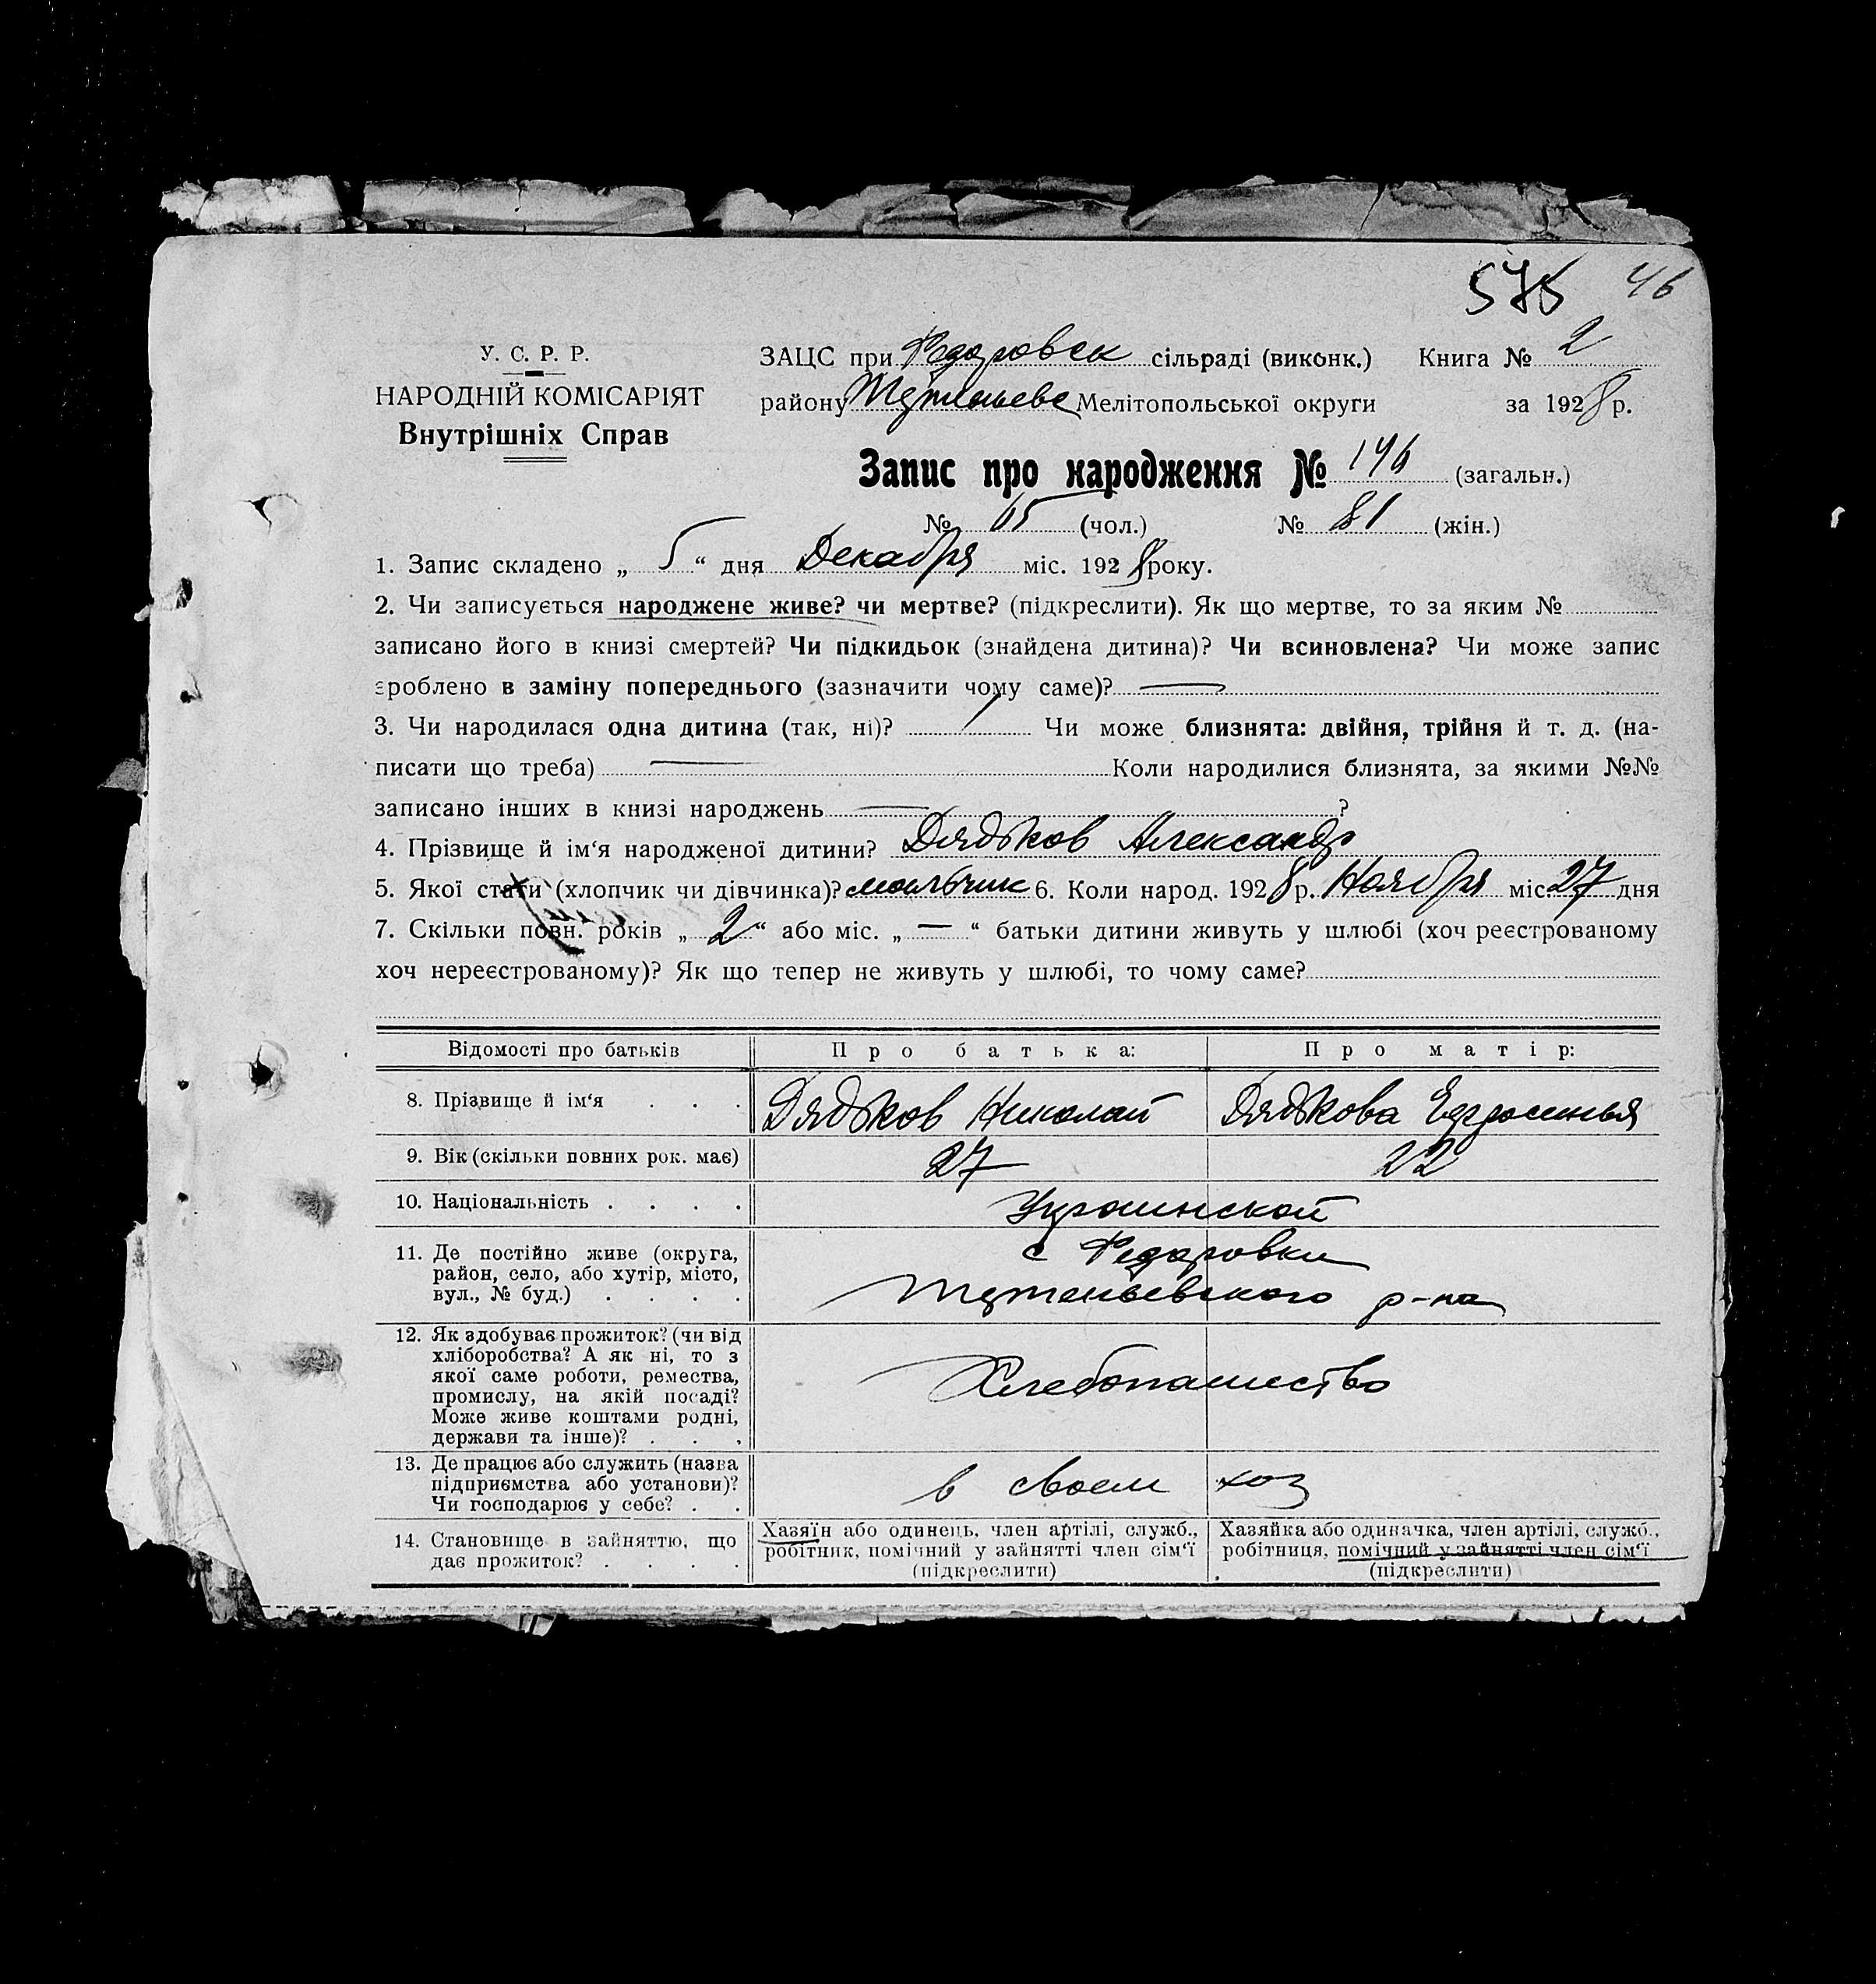 575 46
У. С. Р. Р.
НАРОДНІЙ КОМІСАРІЯТ
Внутрішніх Справ
ЗАЦС при Федоровск сільраді (виконк.) Книга № 2
району Мелітопольської округи за 1928 р.
Запис про народження № 146 (загальн.)
№ 65 (чол.) № 81 (жін.)
1. Запис складено „ 5 “ дня Декабря міс. 1928 року.
2. Чи записується народжене живе? чи мертве? (підкреслити). Як що мертве, то за яким №
записано його в книзі смертей? Чи підкидьок (знайдена дитина)? Чи всиновлена? Чи може запис
зроблено в заміну попереднього (зазначити чому саме)? —
3. Чи народилася одна дитина (так, ні)? / Чи може близнята: двійня, трійня й т. д. (на-
писати що треба) — Коли народилися близнята, за якими №№
записано інших в книзі народжень — ?
4. Прізвище й ім‘я народженої дитини? Дядьков Александр
5. Якої стати (хлопчик чи дівчинка)? мальчик 6. Коли народ. 1928 р. Ноября міс. 27 дня
7. Скільки повн. років „ 2 “ або міс. „ — “ батьки дитини живуть у шлюбі (хоч реєстрованому
хоч нереєстрованому)? Як що тепер не живуть у шлюбі, то чому саме?
Відомості про батьків Про батька: Про матір:
8. Прізвище й ім‘я . . . Дядьков Николай Дядькова Ефросинья
9. Вік (скільки повних рок. має) 27 22
10. Національність . . . . Украинской
11. Де постійно живе (округа,
район, село, або хутір, місто,
вул., № буд.) . . . .
с Федоровки
р-на
12. Як здобуває прожиток? (чи від
хліборобства? А як ні, то з
якої саме роботи, ремества,
промислу, на якій посаді?
Може живе коштами родні,
держави та інше)? . . .
Хлебопашество
13. Де працює або служить (назва
підприємства або установи)?
Чи господарює у себе? . .
в своем хоз
14. Становище в зайняттю, що
дає прожиток? . . . .
Хазяїн або одинець, член артілі, служб.,
робітник, помічний у зайнятті член сім‘ї
(підкреслити)
Хазяйка або одиначка, член артілі, служб.,
робітниця, помічний у зайнятті член сім‘ї
(підкреслити)